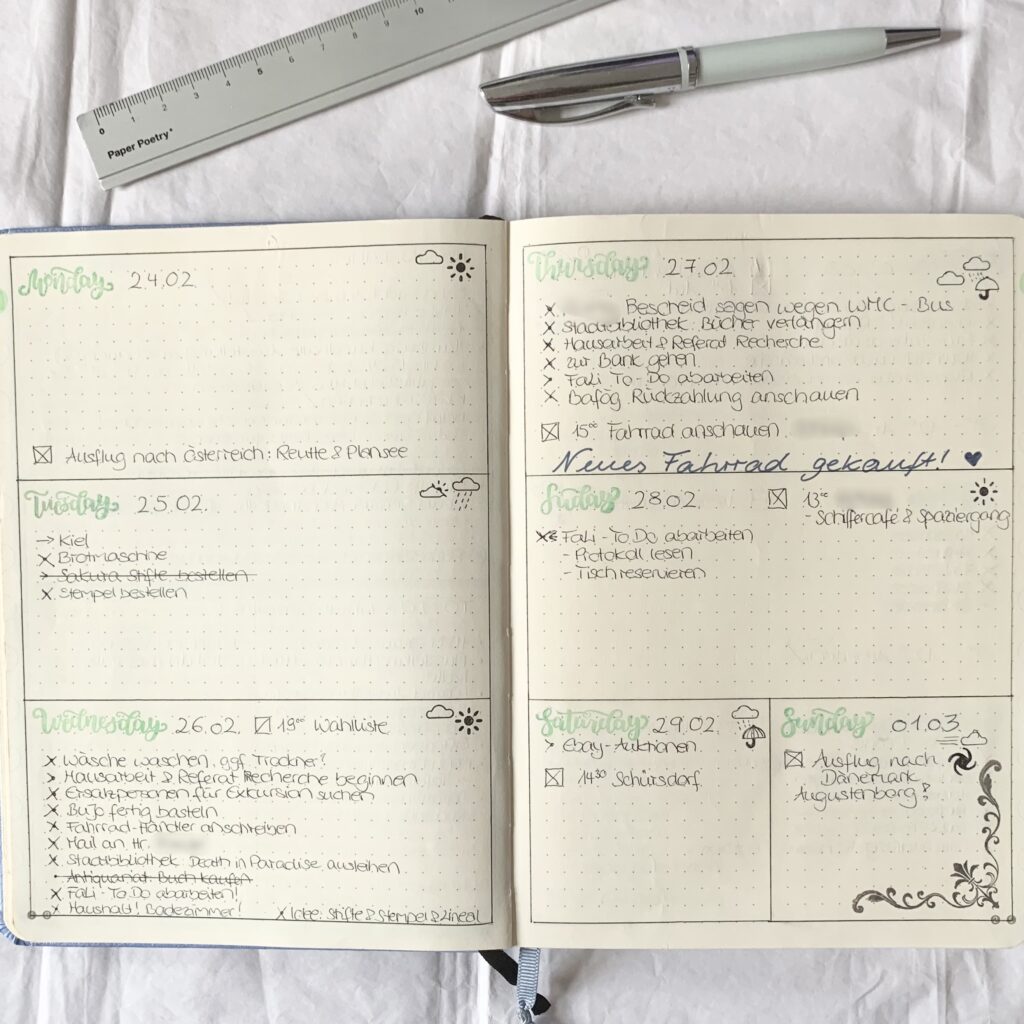 0 1 2 3 4 5 6 7 8 9 10
Paper Poetry
Monday 24.02
Ausflug nach Österreich: Reutte & Plansee
Tuesday 25.02.
→ Kiel
x Brotmaschine
> Sakura Stifte bestellen
x Stempel bestellen
Wednesday 26.02. 19⁰⁰ Wahlliste
x Wäsche waschen, ggf. Trockner?
> Hausarbeit & Referat Recherche beginnen
x Ersatzpersonen für Exkursion suchen
x BuJo fertig basteln
x Fahrrad-Händler anschreiben
x Mail an Hr.
x Stadtbibliothek: Death in Paradise ausleihen
• Antiquariat: Buch kaufen
x FaLi - To Do abarbeiten!
x Haushalt! Badezimmer!
x Idee: Stifte & Stempel & Lineal
Thursday 27.02
x Bescheid sagen wegen WMC - Bus
x Stadtbibliothek: Bücher verlängern
x Hausarbeit & Referat Recherche
x zur Bank gehen
> FaLi To-Do abarbeiten
x Bafög Rückzahlung anschauen
15⁰⁰ Fahrrad anschauen
Neues Fahrrad gekauft! ♥
Friday 28.02 13⁰⁰
- Schiffercafé & Spaziergang
FaLi - To Do abarbeiten
- Protokoll lesen
- Tisch reservieren
Saturday 29.02
> Ebay-Auktionen
14³⁰ Schürsdorf
Sunday 01.03
Ausflug nach
Dänemark,
Augustenborg?